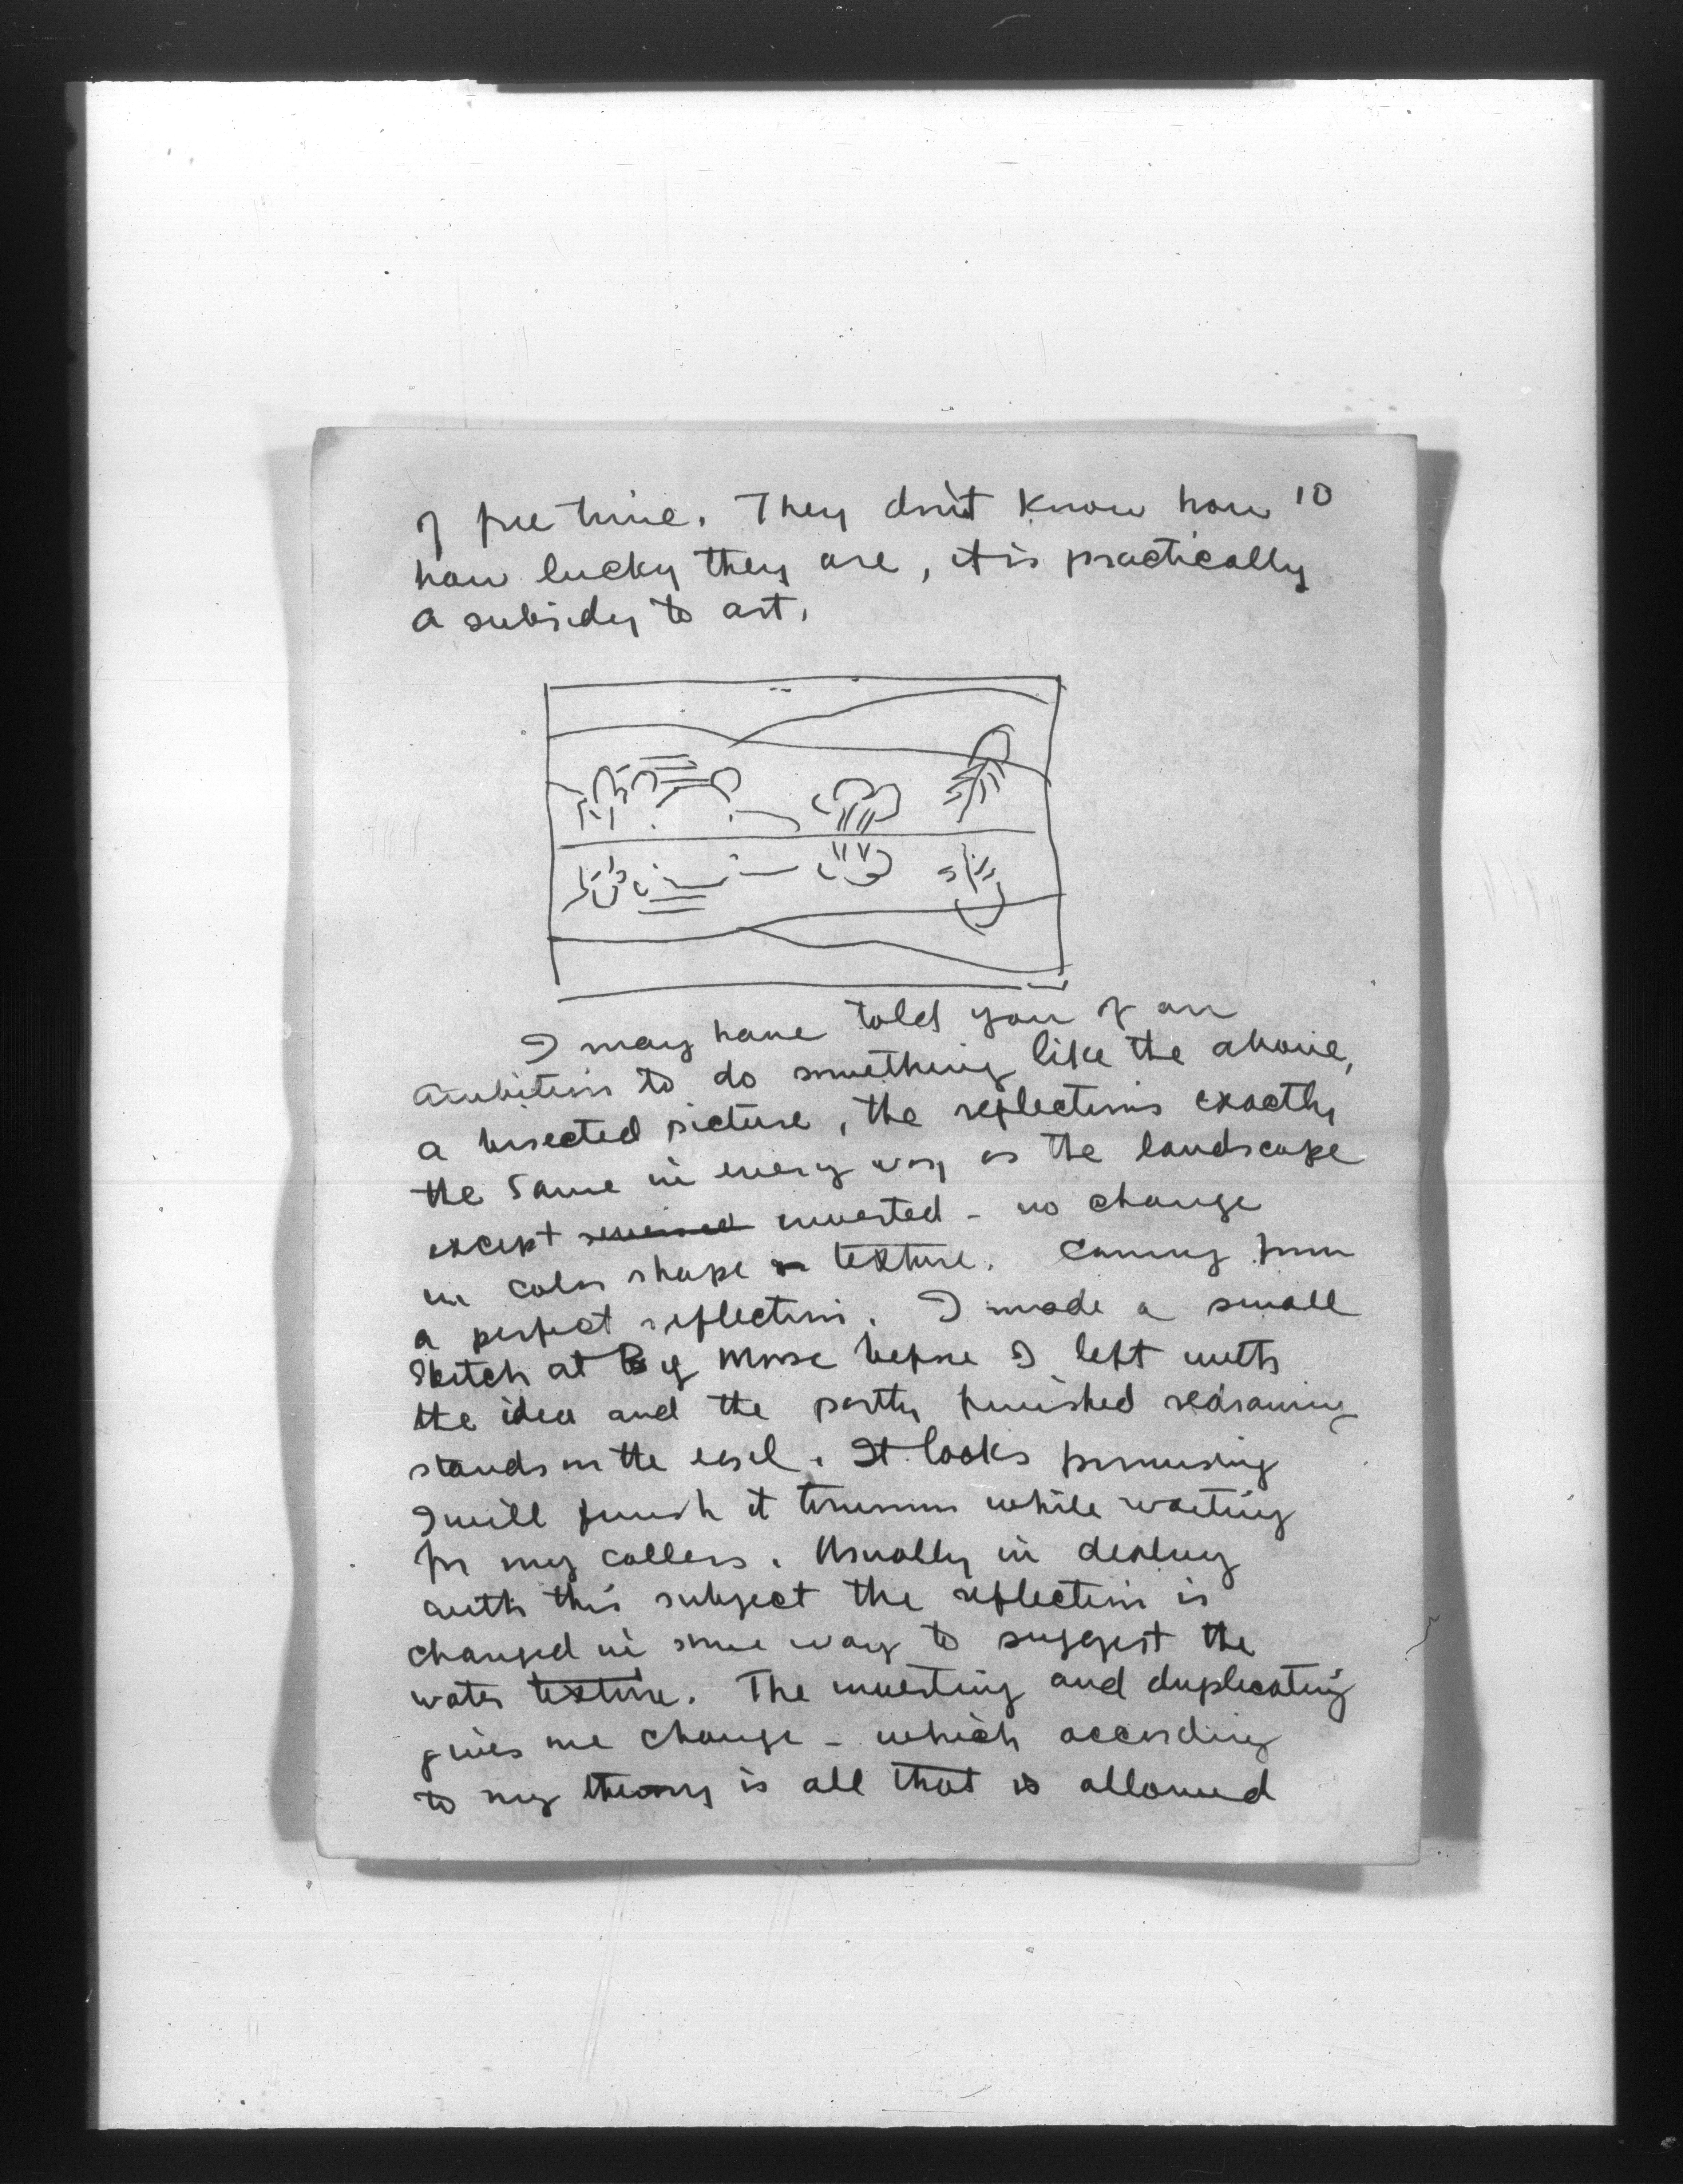 of free time. They don't know how 10
how lucky they are, it is practically
a subsidy to art.
I may have told you of an
ambition to do something like the above,
a bisected picture, the reflections exactly
the same in every way as the landscape
except reversed inverted - no change
in color shape or texture. Coming from
a perfect reflection. I made a small
sketch at Big Moose before I left with
the idea and the partly finished redrawing
stands on the easel. It looks promising
I will finish it tomorrow while waiting
for my callers. Usually in dealing
with this subject the reflection is
changed in some way to suggest the
water texture. The inverting and duplicating
gives me change - which according
to my theory is all that is allowed